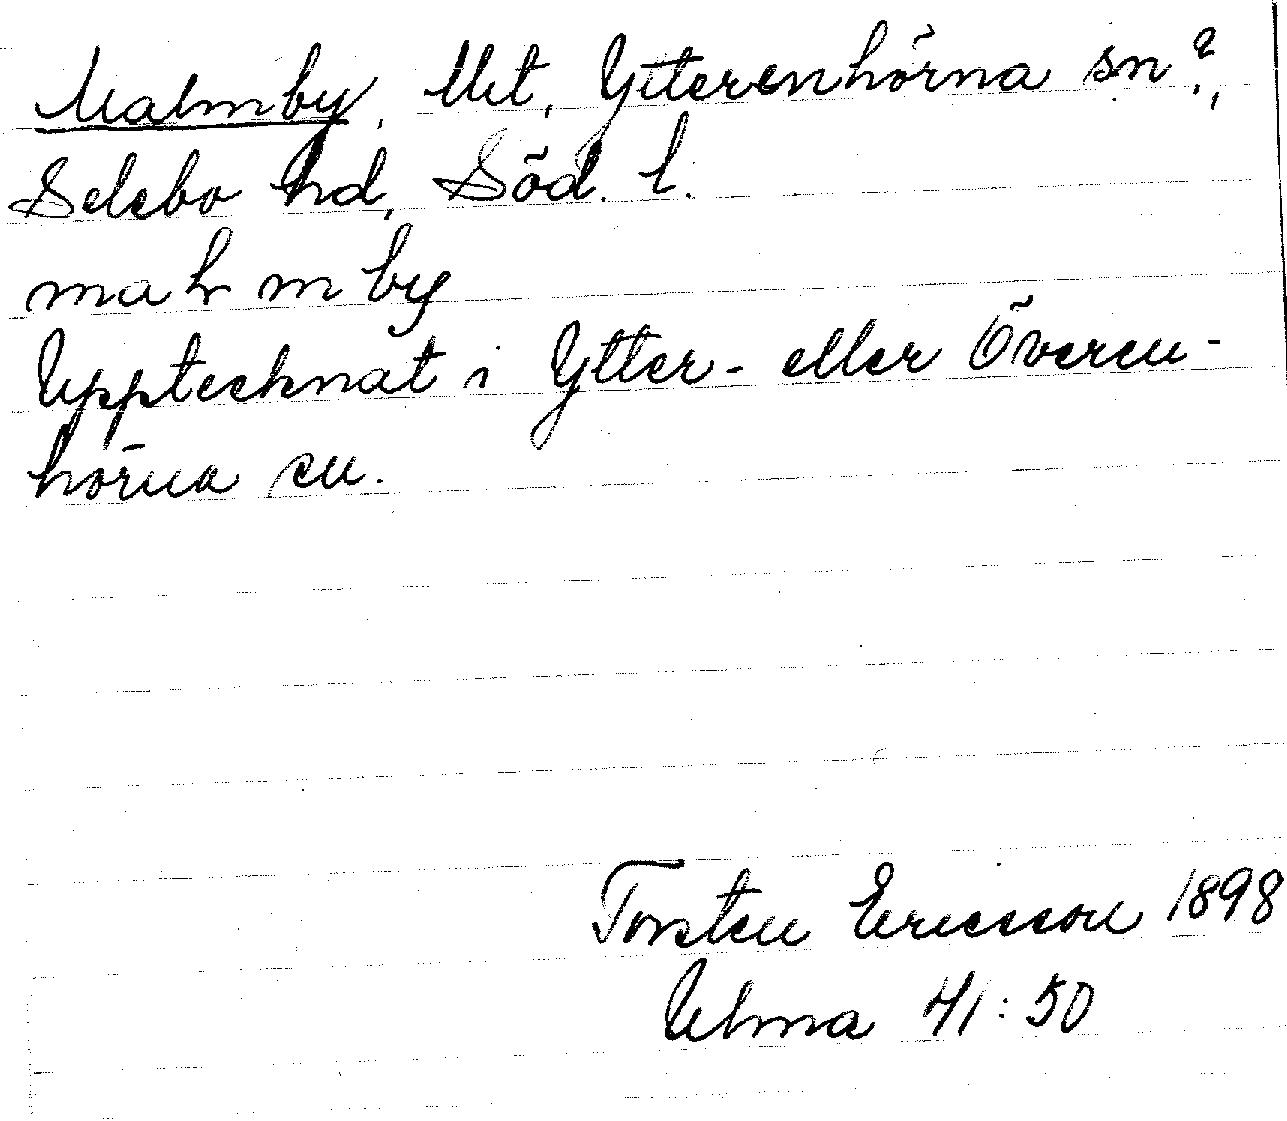 Malmby, Utt, Ytterenhörna sn?,
Selebo hd, Söd. l.
malmby
Upptecknat i Ytter- eller Överen-
hörna sn.
Torsten Ericsson 1898
Ulma 41:50